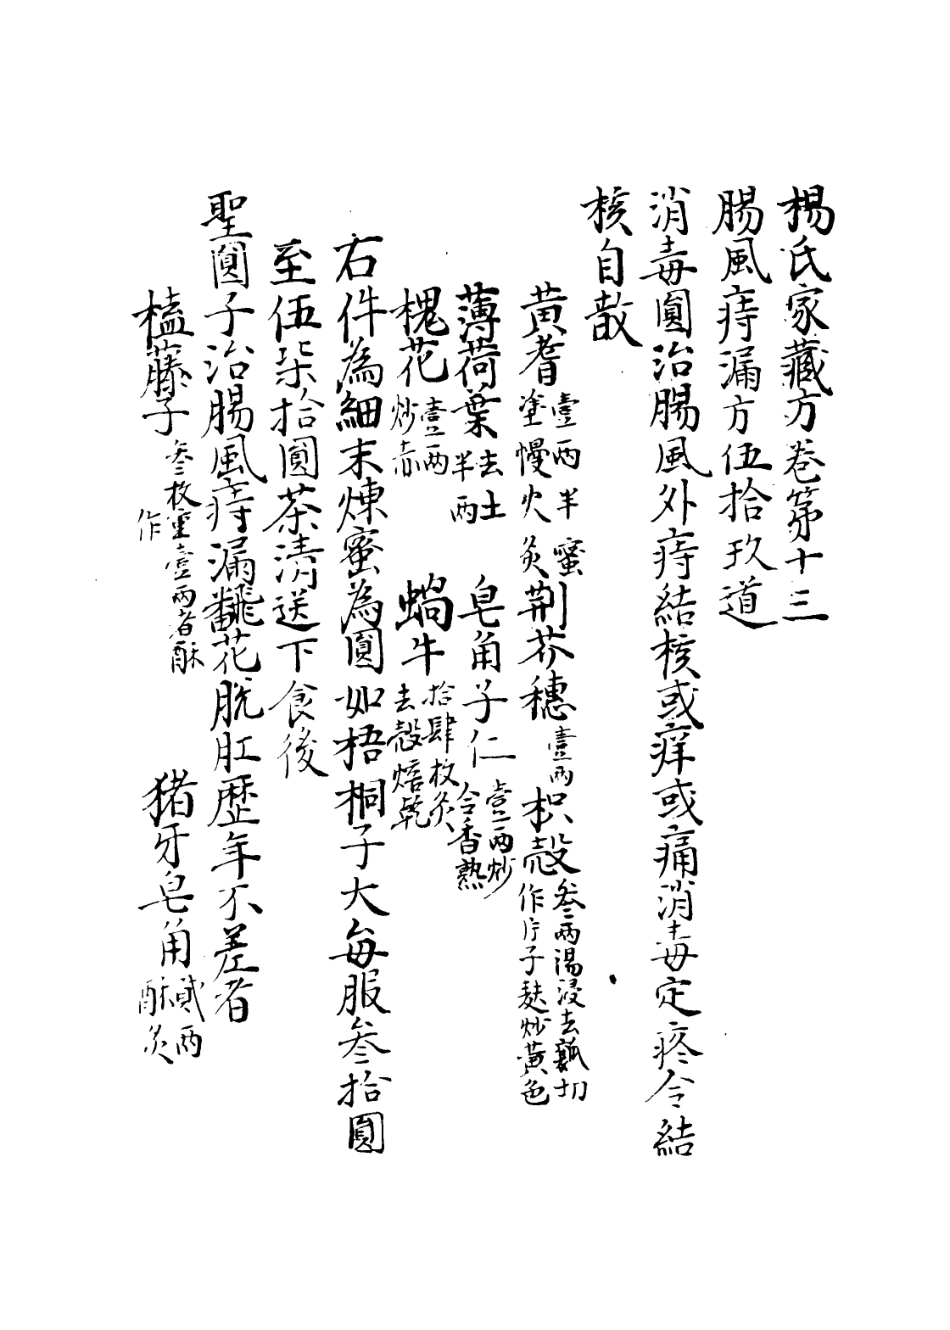 楊氏家藏方卷第十三
腸風痔漏方伍拾玖道
消毒圓治腸風外痔結核或痒或痛消毒定疼令結
核自散
黃耆壹兩半蜜塗慢火炙荆芥穗壹兩枳殼叁兩湯浸去瓤切作片子麸炒黃色
薄荷葉去土半兩皂角子仁壹兩炒令香熟
槐花壹兩炒赤蝸牛拾肆枚炙去殼焙乾
右件為細末煉蜜為圓如梧桐子大每服叁拾圓
至伍柒拾圓茶清送下食後
聖圓子治腸風痔漏飜花脫肛歷年不差者
榼藤子叁枚重壹兩者酥作猪牙皂角貳兩酥炙